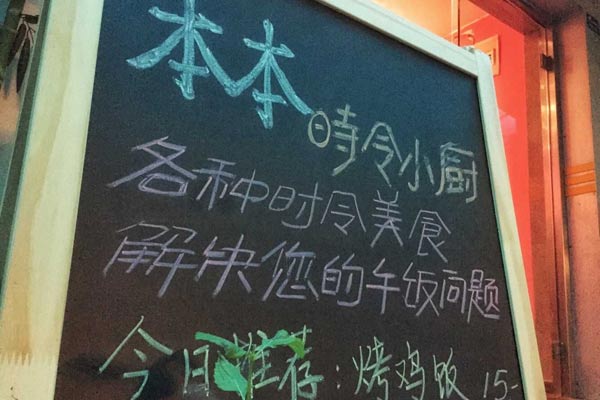 本本
時令小厨
各种时令美食
解决您的午饭问题
今日推荐：烤鸡饭 15-